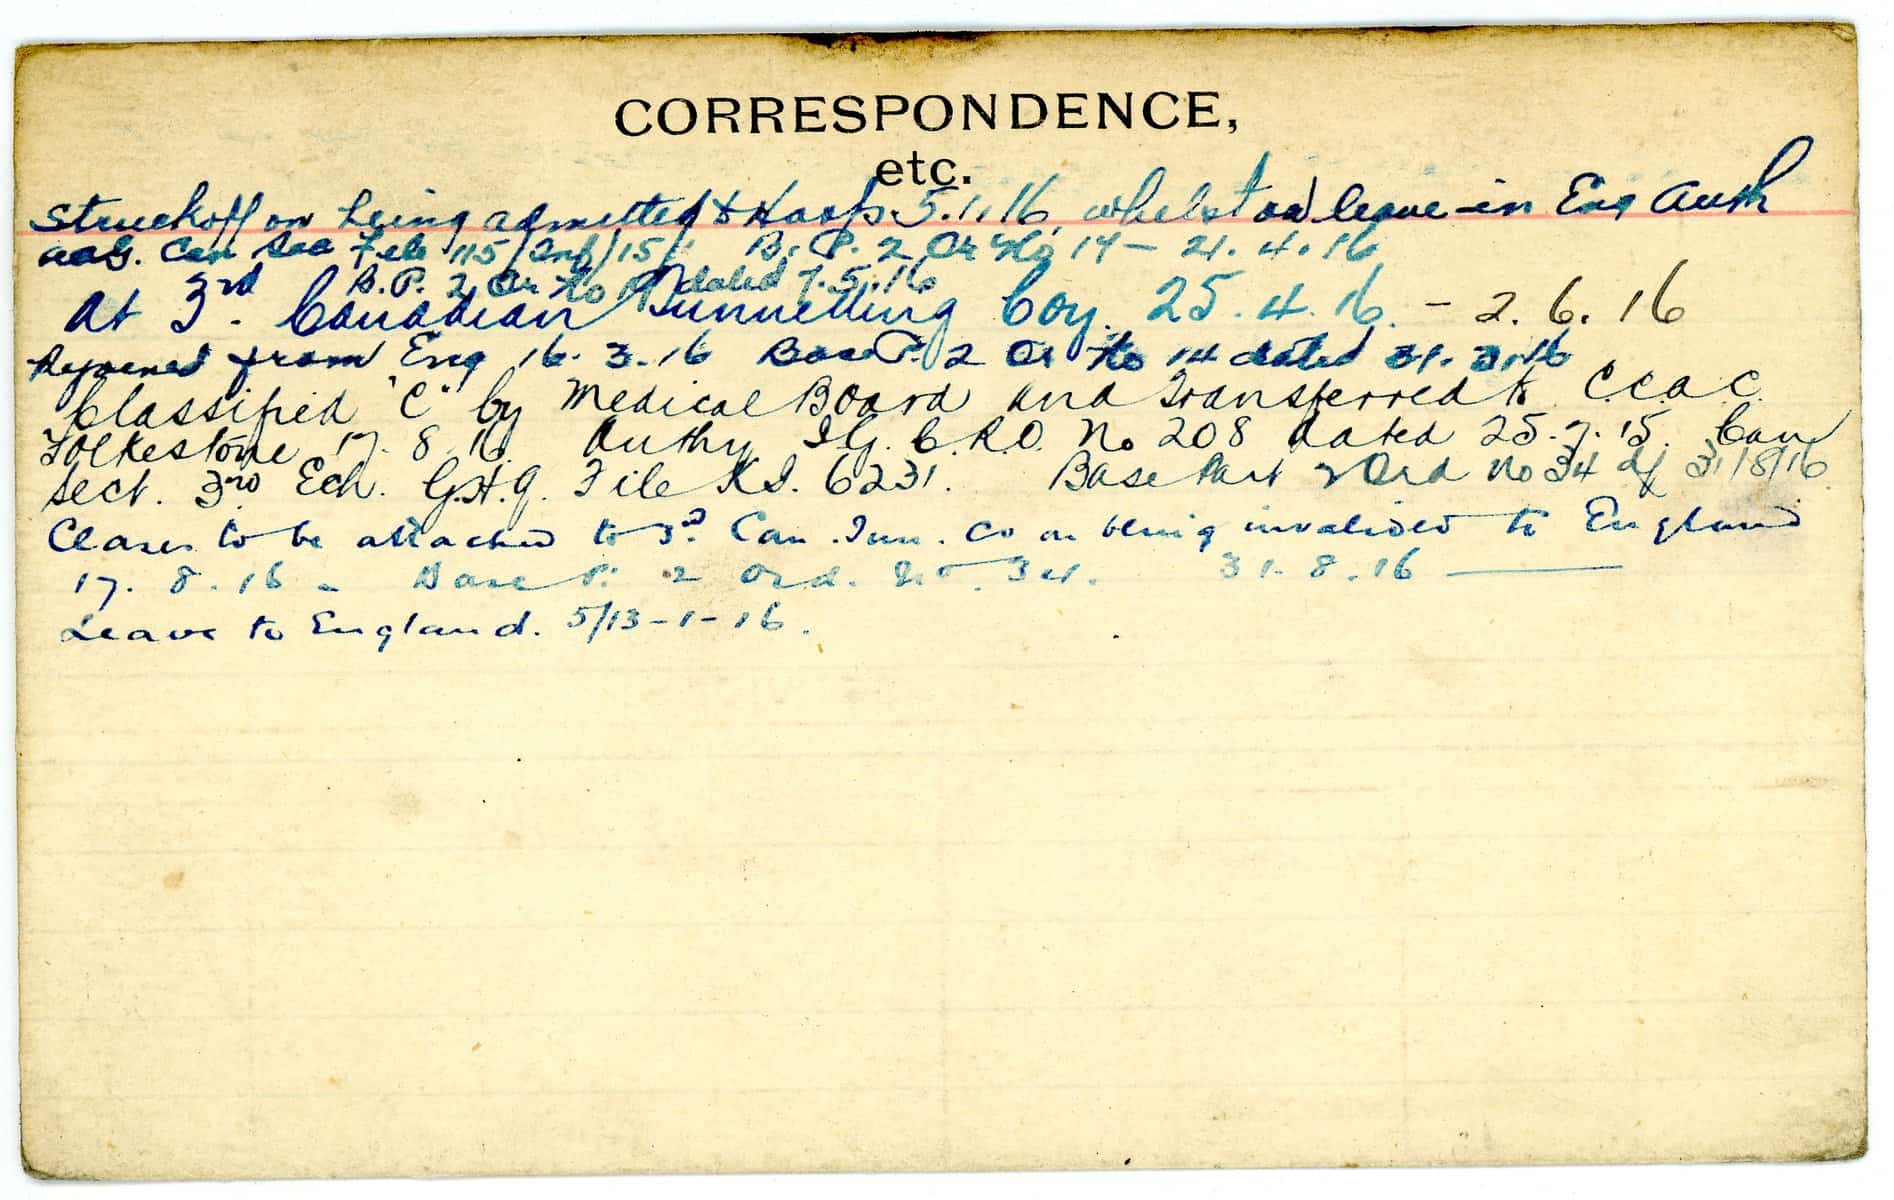 CORRESPONDENCE,
etc.
Struckoff on being admitted to Hosp. 5.1.16 whilst on leave in Eng Auth
aag. Can Sec File 115/Inf/15/. B. P. 2 Or No 17 - 21. 4. 16
B. P. 2 Or No dated 7.5.16
At 3rd Canadian Tunnelling Coy. 25. 4. 16. - 2. 6. 16
Rejoined from Eng 16. 3. 16 Base P. 2 Or No 14 dated 31. 3. 16
Classified "C" by Medical Board and transferred to C.C.A.C.
Folkestone 17. 8. 16. Authy I.G. C.R.O. No 208 dated 25. 7. 15. Can
Sect. 3rd Ech. G.H.Q. File K.I. 6231. Base Part 2 Ord No 34 df 31/8/16.
Ceases to be attached to 3rd Can. Tun. Co on being invalided to England
17. 8. 16 - Base P. 2 Ord. No. 34. 31. 8. 16
Leave to England. 5/13-1-16.